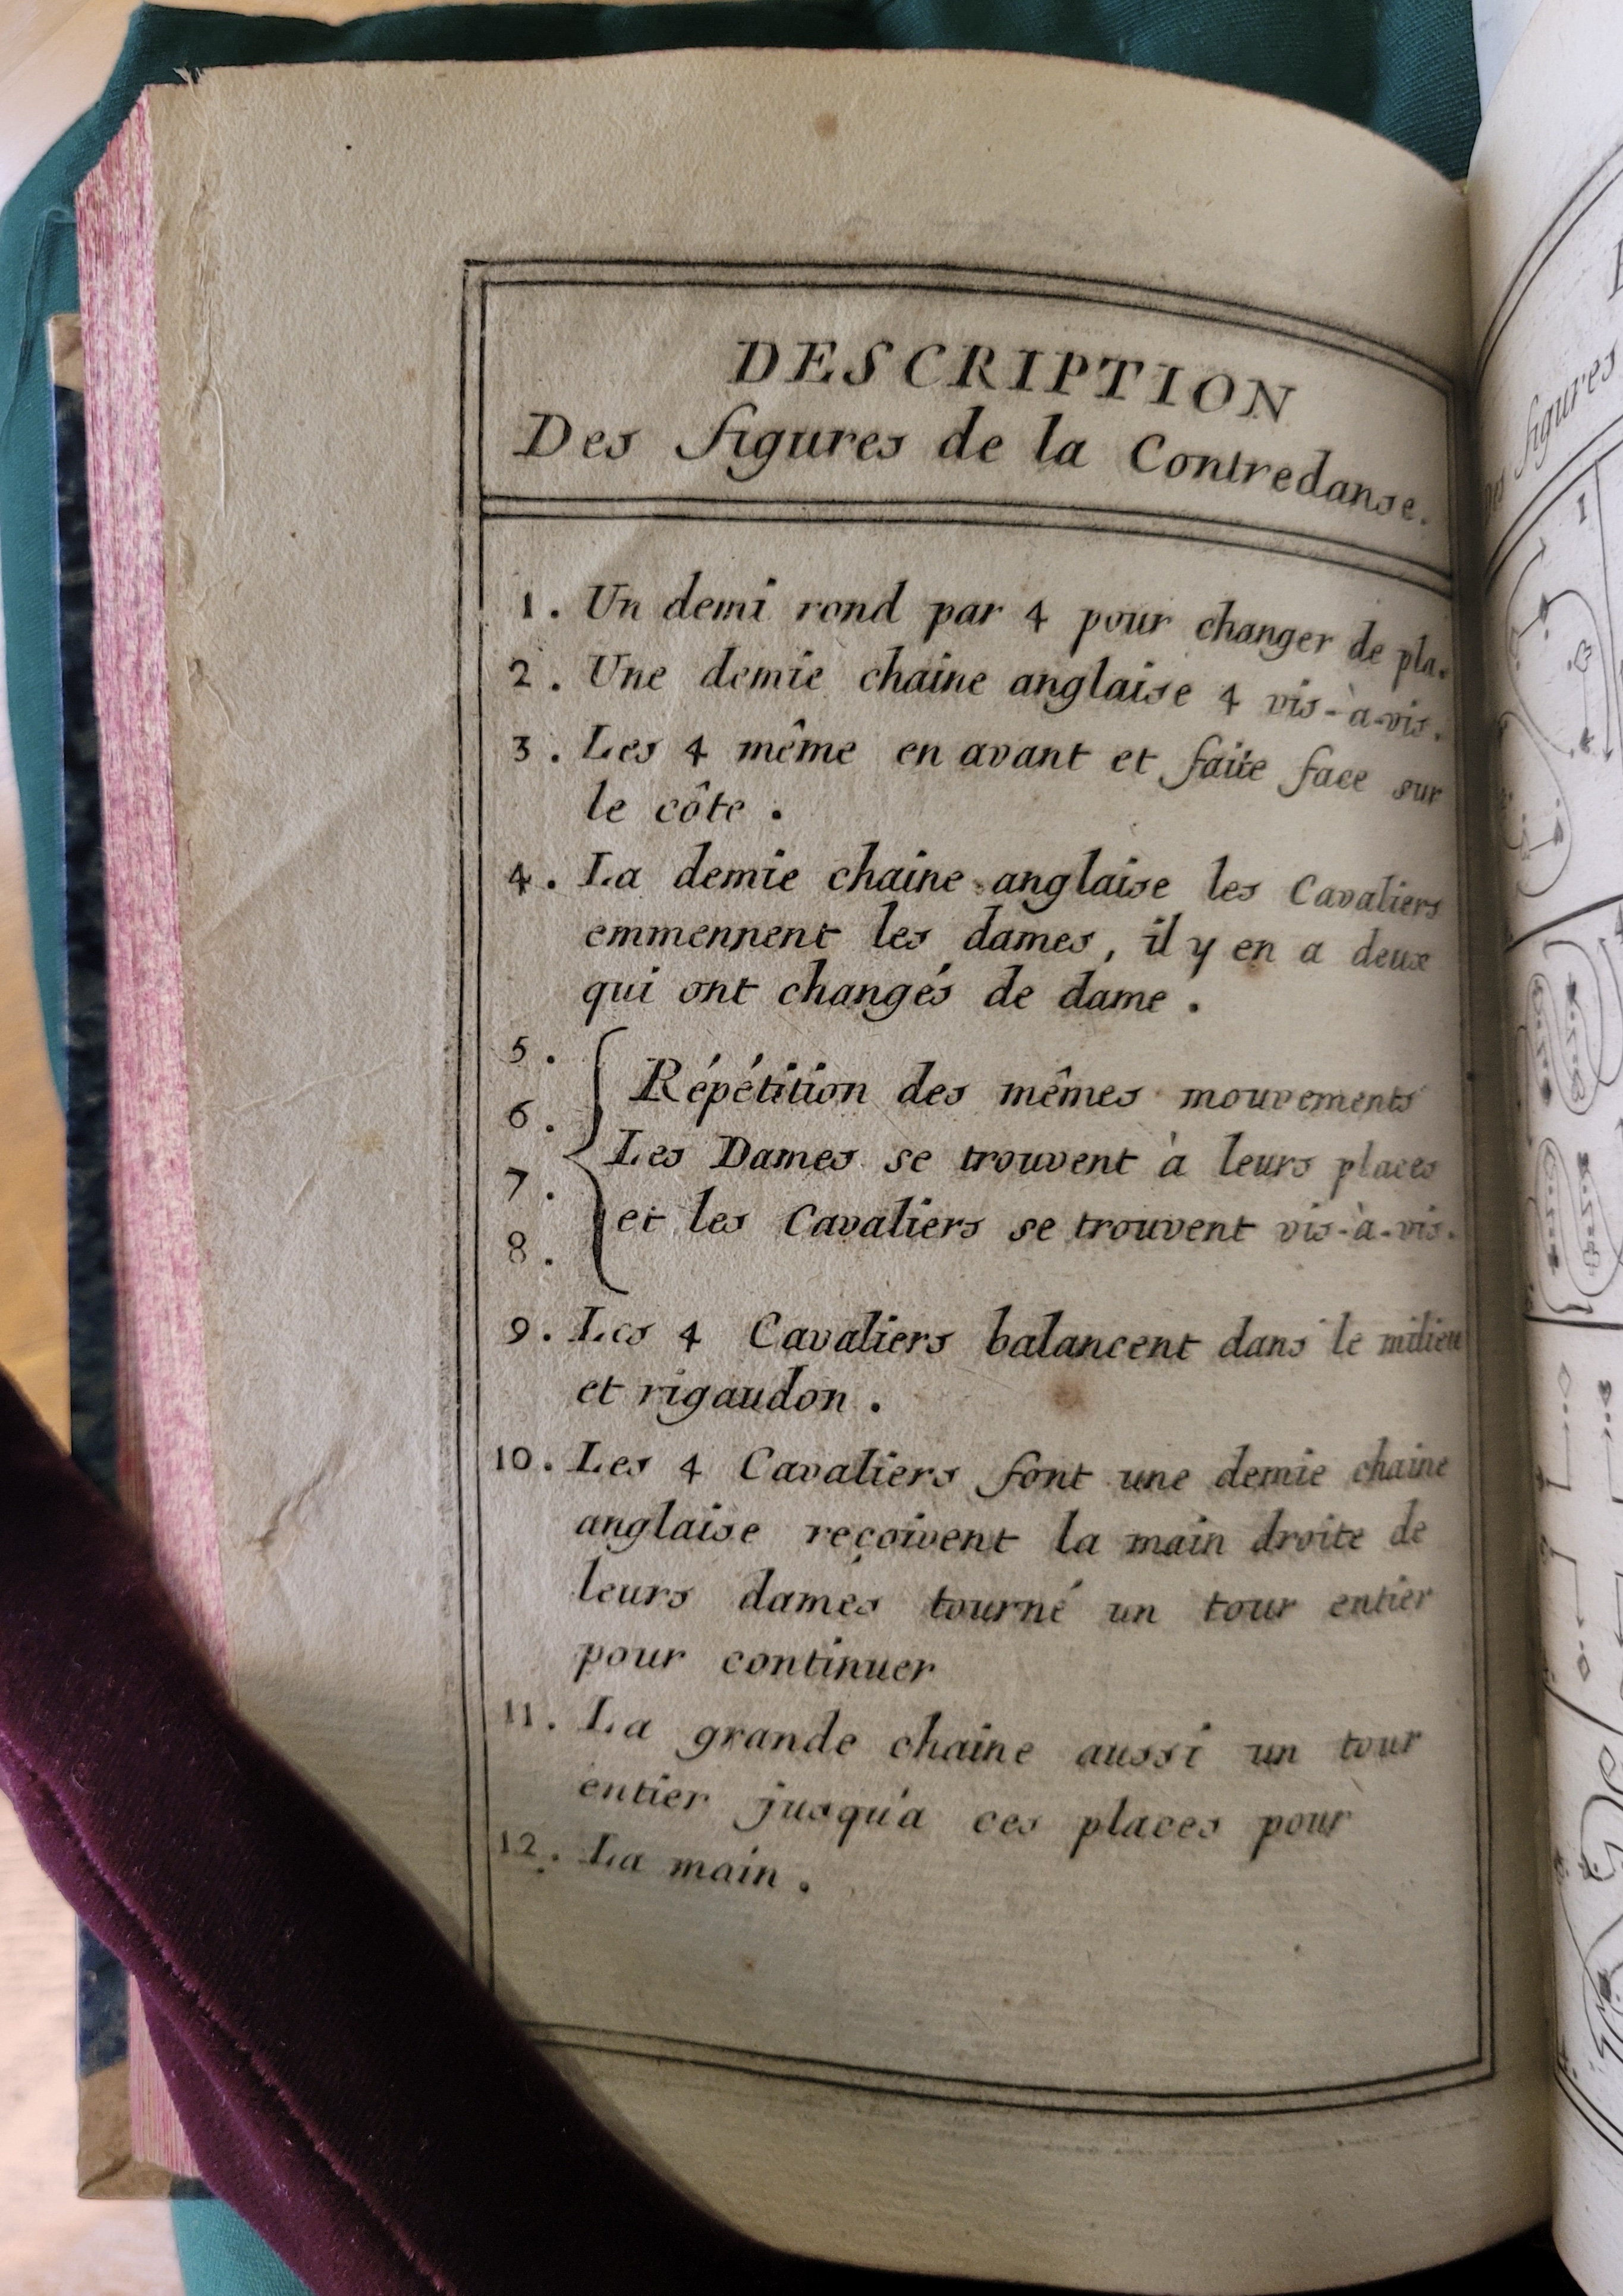 DESCRIPTION
Des figures de la Contredanse.
1. Un demi rond par 4 pour changer de pla.
2. Une demie chaine anglaise 4 vis-à-vis.
3. Les 4 même en avant et faite face sur
le côte.
4. La demie chaine anglaise les Cavaliers
emmennent les dames, il y en a deux
qui ont changés de dame.
5.
6.
7.
8.
Répétition des mêmes mouvements
Les Dames se trouvent à leurs places
et les Cavaliers se trouvent vis-à-vis.
9. Les 4 Cavaliers balancent dans le milieu
et rigaudon.
10. Les 4 Cavaliers font une demie chaine
anglaise reçoivent la main droite de
leurs damés tourné un tour entier
pour continuer
11. La grande chaine aussi un tour
entier jusqu'a ces places pour
12. La main.
figures
1